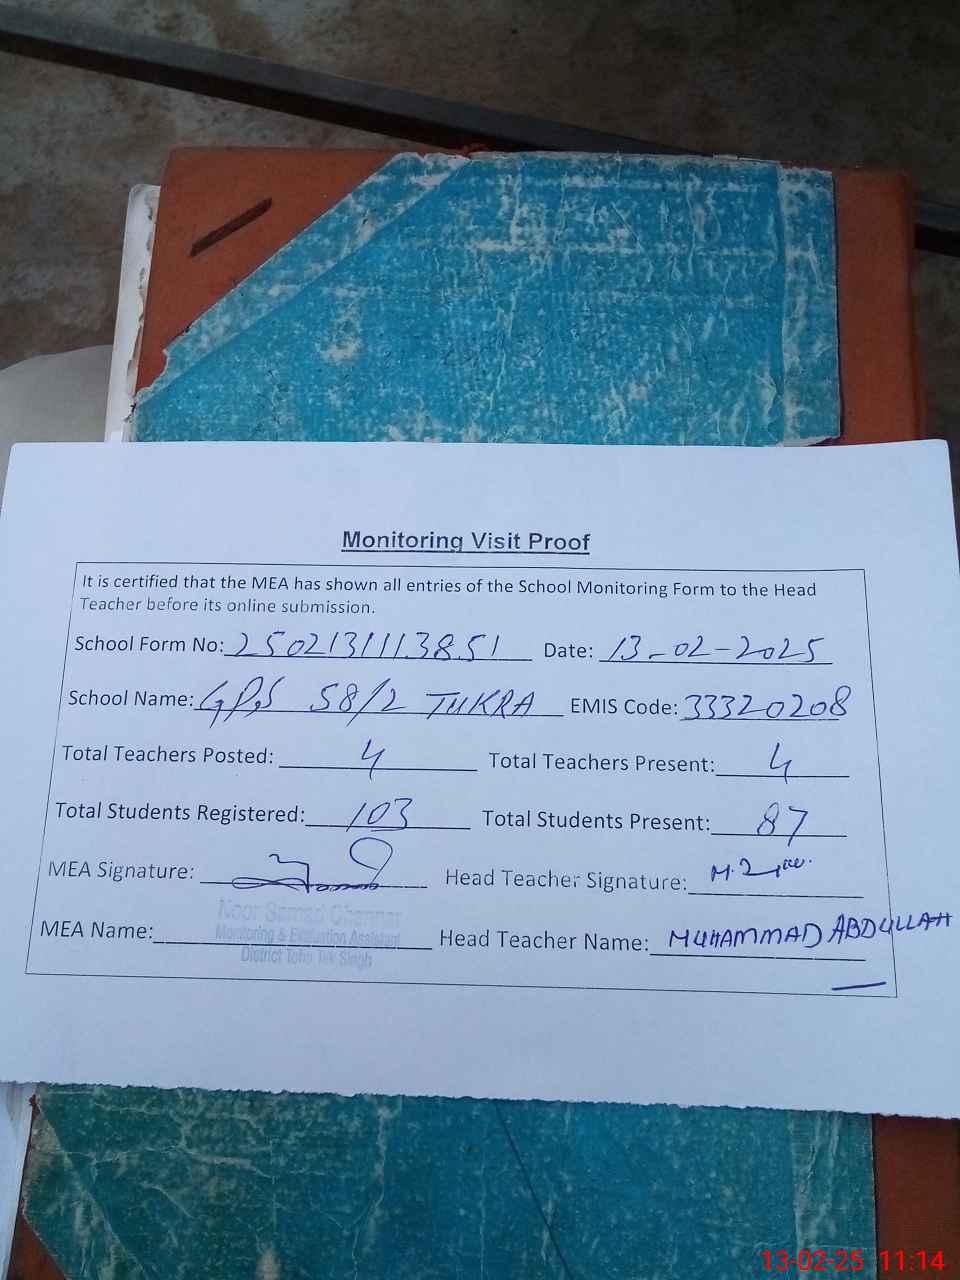 Monitoring Visit Proof
It is certified that the MEA has shown all entries of the School Monitoring Form to the Head
Teacher before its online submission.
School Form No: 2502131113851 Date: 13-02-2025
School Name: GPS 58/2 TUKRA EMIS Code: 33320208
Total Teachers Posted: 4 Total Teachers Present: 4
Total Students Registered: 103 Total Students Present: 87
MEA Signature: Head Teacher Signature:
Noor Samad
Monitoring & Evaluation Assistant
MEA Name: Head Teacher Name: MUHAMMAD ABDULLAH
District Toba Tek Singh
13-02-25 11:14